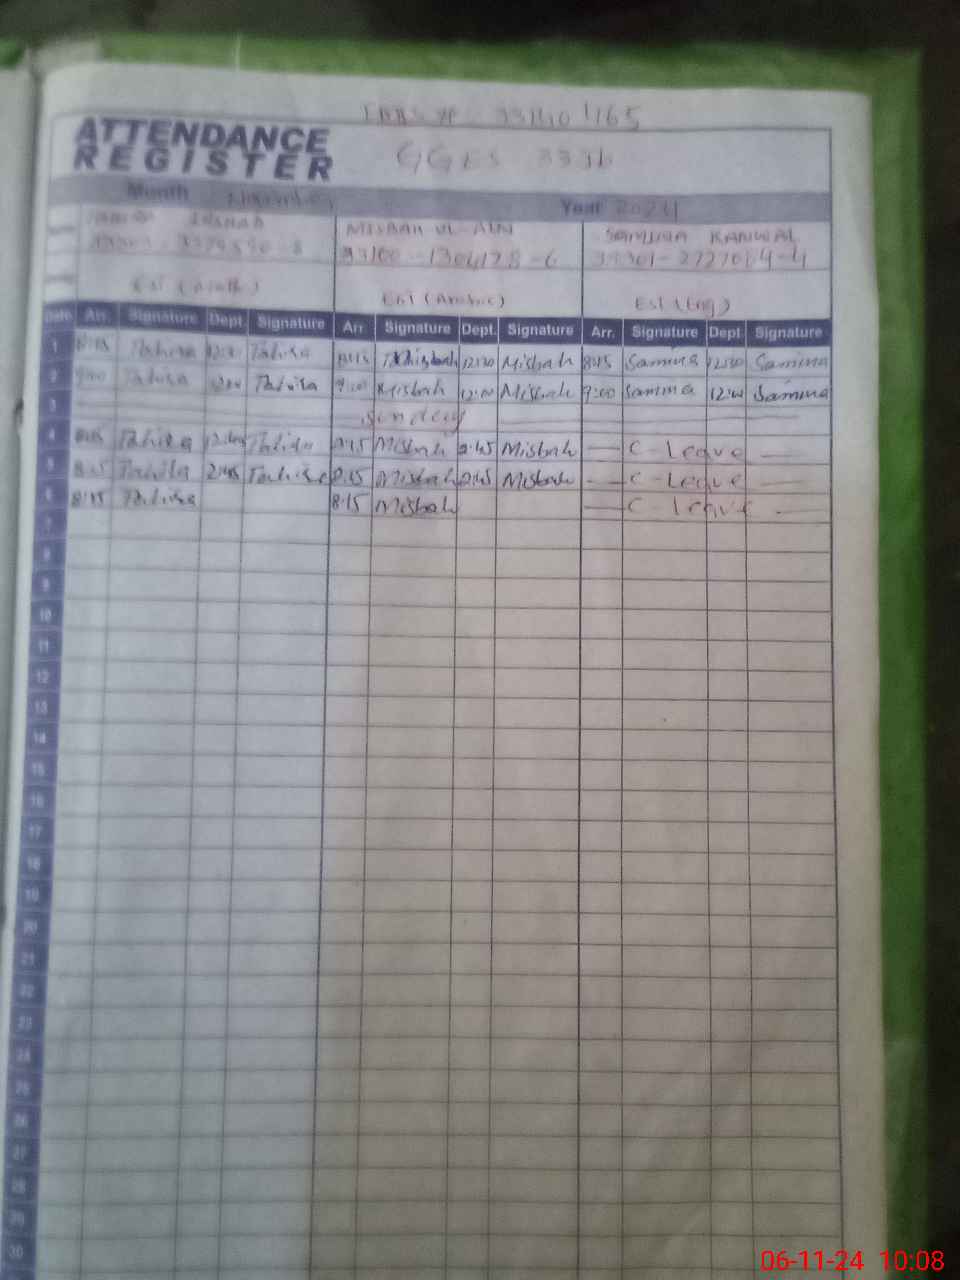 33140465
ATTENDANCE
REGISTER
GGES 333
Month November Year 2024
MISBAH UL AIN SAMINA KANWAL
33100-1304128-6
Est (Arabic) Est (Eng)
Date Arr. Signature Dept Signature Arr. Signature Dept. Signature Arr. Signature Dept Signature
1 8:15 Tahira Tahira Misbah 12:30 Misbah 8:15 Samina 12:30 Samina
2 9:00 Tahira Tahira 9:00 Misbah 12:00 Misbah 9:00 Samina 12:00 Samina
3 Sunday
4 8:15 Tahira Tahira 8:15 Misbah 2:45 Misbah — C-Leave —
5 8:15 Tahira 2:45 Tahira 8:15 Misbah 2:45 Misbah — C-Leave —
6 8:15 Tahira 8:15 Misbah — C-Leave —
7
8
9
10
11
12
13
14
15
16
17
18
19
20
21
22
23
24
25
26
27
28
29
30
06-11-24 10:08